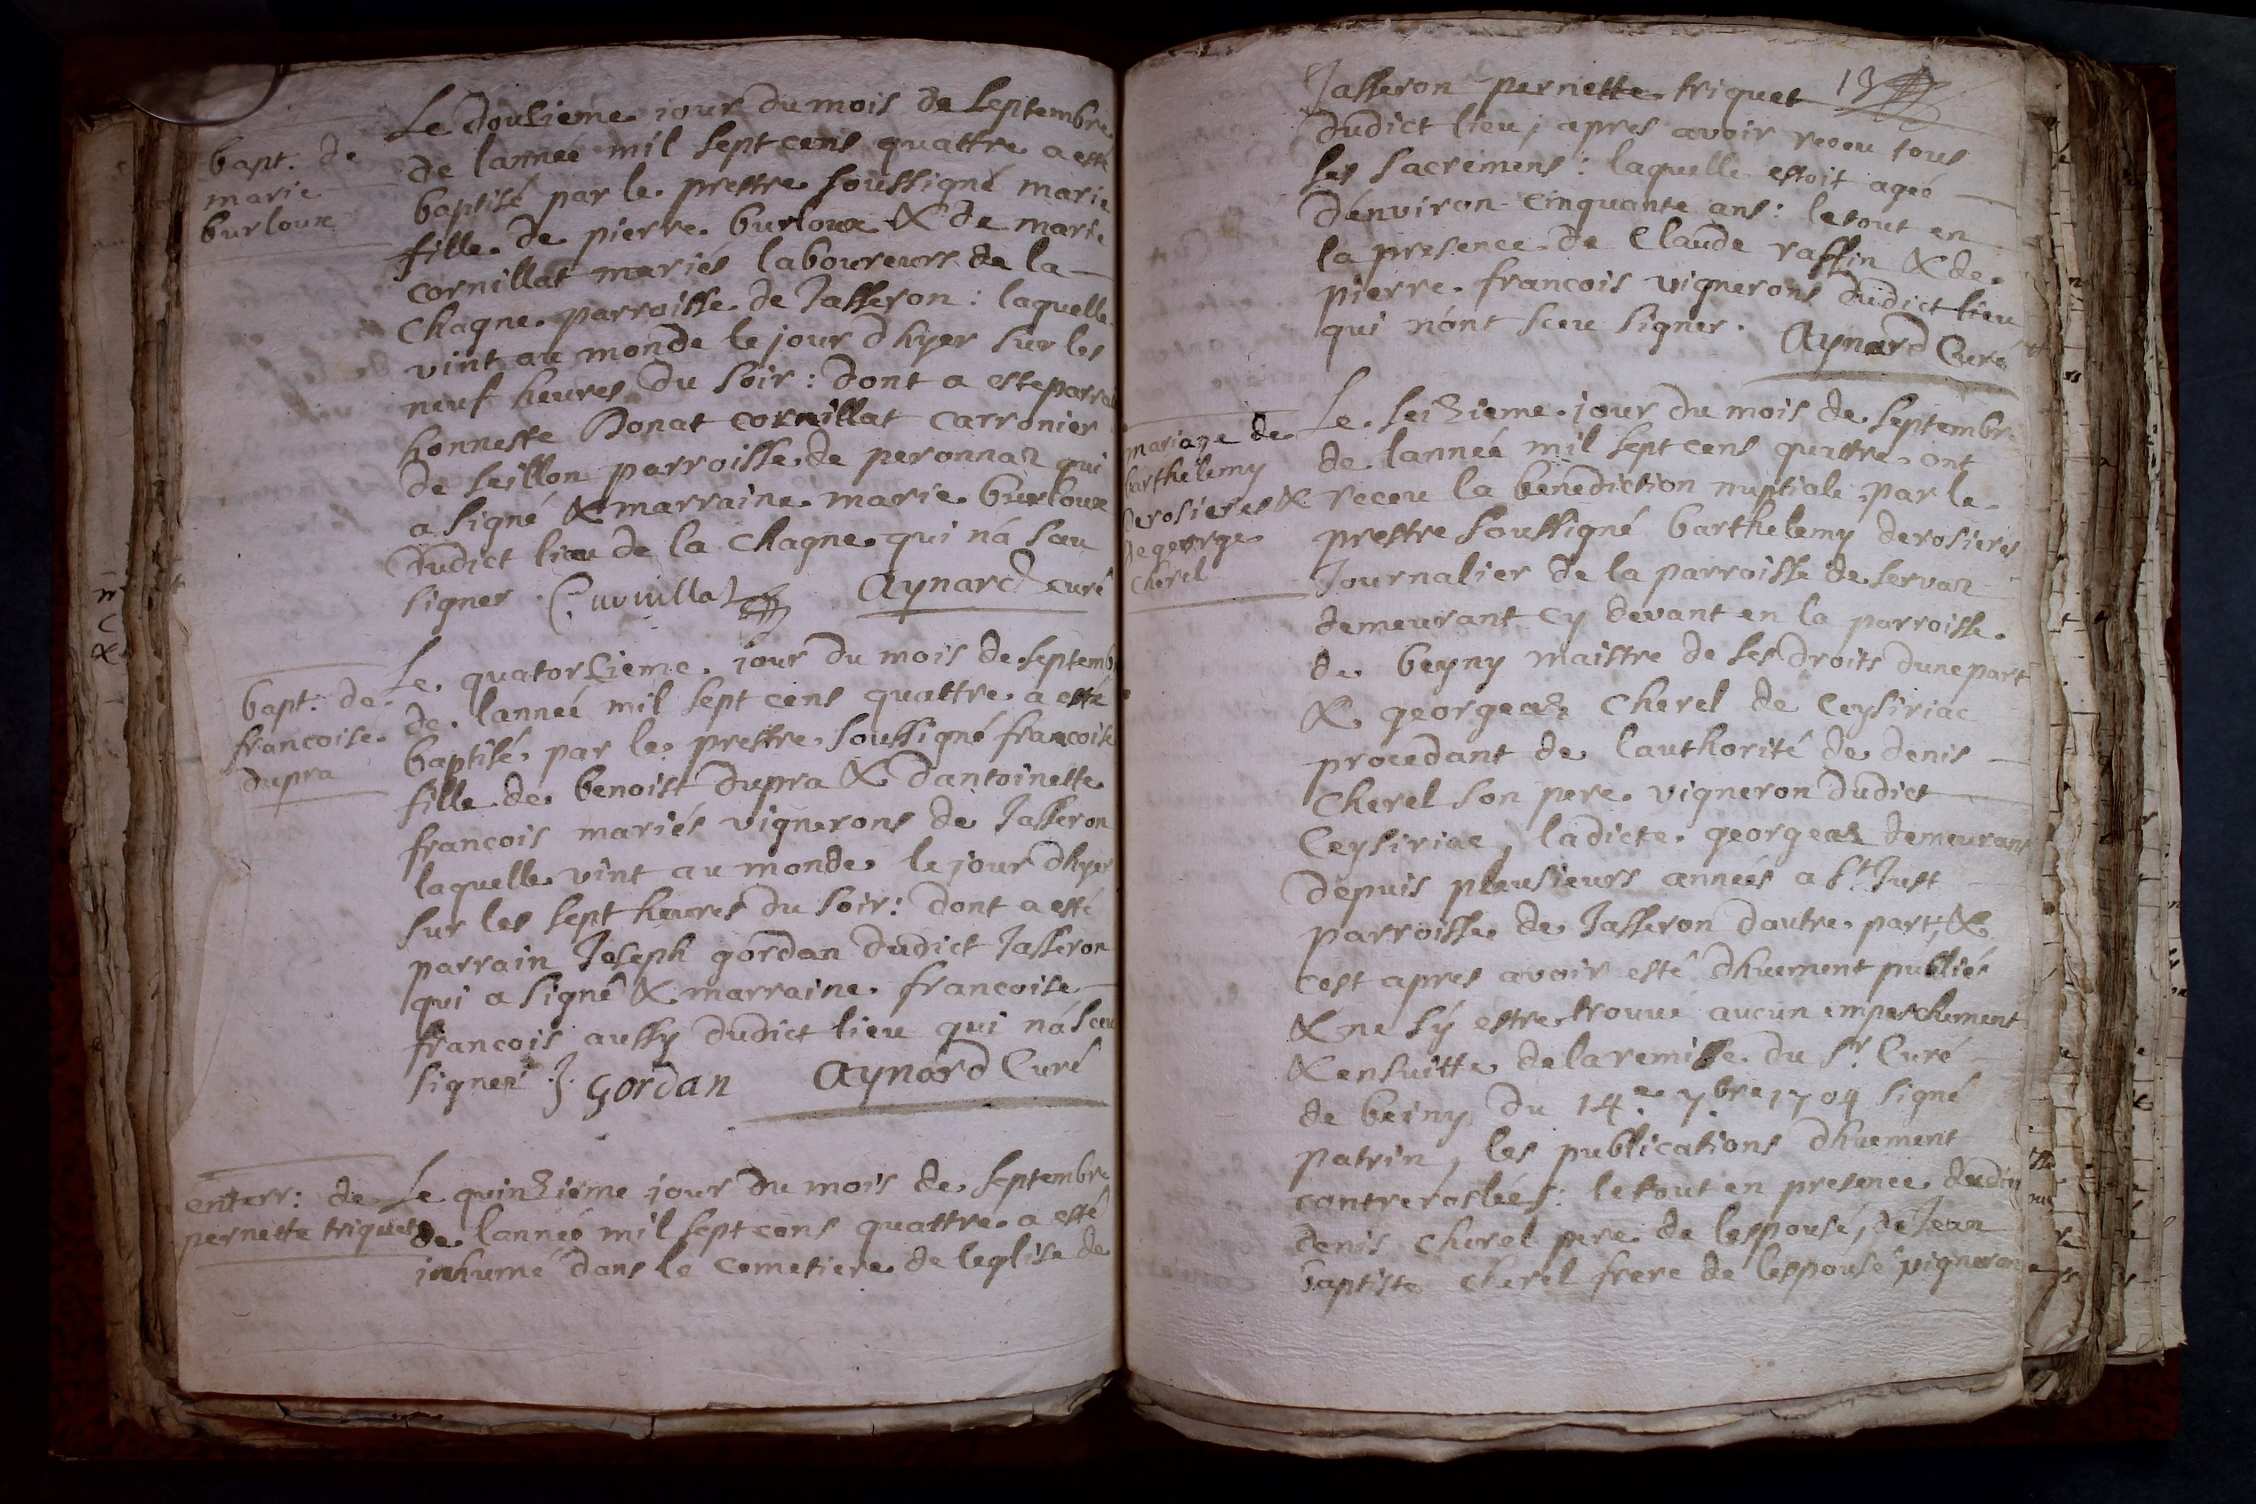 bapt: de
marie
burloux
Le douzieme jour du mois de Septembre
de lanneé mil sept cens quattre a esté
baptisé par le prestre soussigné marie
fille de pierre burloux & de marie
cornillat mariés laboureurs de la
Chagne parroisse de Jasseron : laquelle
vint au monde le jour dhyer sur les
neuf heures du soir : dont a esté parrai
honneste Donat cornillat carronier
de seillon parroisse de peronnaz qui
a signé & marraine marie burloux
dudict lieu de la Chagne qui ná sceu
signer. Aynard curé
bapt: de
francoise
dupra
Le quatorzieme jour du mois de septemb
de lanneé mil sept cens quattre a esté
baptisé par le prestre soussigné francoise
fille de benoist dupra & dantoinette
francois mariés vignerons de Jasseron
laquelle vint au monde le jour dhyer
sur les sept heures du soir : dont a esté
parrain Joseph gordan dudict Jasseron
qui a signé & marraine francoise
francois aussy dudict lieu qui ná sceu
signer J. Gordan Aynard Curé
enterr: de
pernette triquet
Le quinzieme jour du mois de septembre
de lanneé mil sept cens quattre a esté
inhumé dans le cemetiere de leglise de
13
Jasseron pernette triquet
dudict lieu, apres avoir receu tous
les sacremens : laquelle estoit ageé
dénviron cinquante ans : le tout en
la presence de Claude raffin & de
pierre francois vignerons dudict lieu
qui nónt sceu signer. Aynard Curé
mariage de
barthelemy
derosieres &
de george
cherel
Le seizieme jour du mois de septembre
de lanneé mil sept cens quattre ont
receu la benediction nuptiale par le
prestre soussigné barthelemy derosieres
Journalier de la parroisse de servaz
demeurant cy devant en la parroisse
de beyny maistre de ses droits dune part
& georgeaz cherel de Ceysiriac
procedant de lauthorité de denis
Cherel son pere vigneron dudict
Ceysiriac, ladicte georgeaz demeurant
depuis pleusieurs années a St Just
parroisse de Jasseron dautre part, &
cest apres avoir esté dhuement publiés
& ne sý estre trouvé aucun empeschement
& ensuitte de la remisse du Sr Curé
de beiny du 14e 7bre 1704 signé
patrin, les publications dhuement
contrerosleés : le tout en presence dudict
denis cherel pere de lespousé, de Jean
baptiste cherel frere de lespouse vigneron